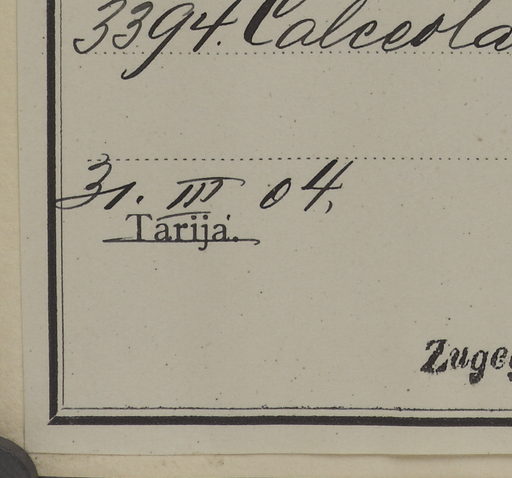 3394. Calceola
31. III 04.
Tarija.
Zugeg